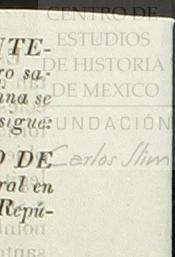 CENTRO DE
ESTUDIOS
DE HISTORIA
DE MEXICO
FUNDACIÓN
Carlos Slim
NTE-
ro sa-
una se
sigue:
O DE
ral en
Repú-